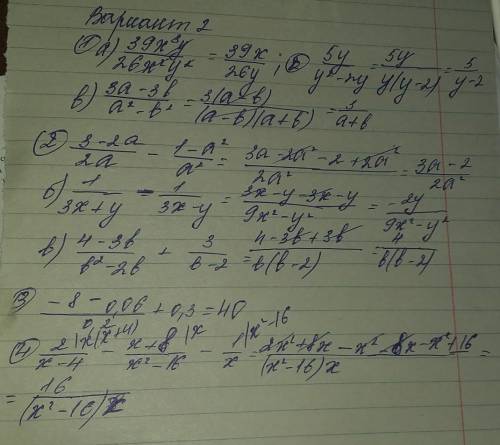 Вариант 2
① а) 39x³y/26x²y² = 39x/26y ; б) 5y/y²-2y = 5y/y(y-2) = 5/y-2
в) 3a-3b/a²-b² = 3(a-b)/(a-b)(a+b) = 3/a+b
② 3-2a/2a - 1-a²/a² = 3a-2a²-2+2a²/2a² = 3a-2/2a²
б) 1/3x+y - 1/3x-y = 3x-y-3x-y/9x²-y² = -2y/9x²-y²
в) 4-3b/b²-2b + 3/b-2 = 4-3b+3b/b(b-2) = 4/b(b-2)
③ -8-0,06/0,2 + 0,3 = 40
④ 2|x(x+4)/x-4 - x+8|x/x²-16 - 1|x²-16/x = 2x²+8x-x²-8x-x²+16/(x²-16)x =
= 16/(x²-16)x